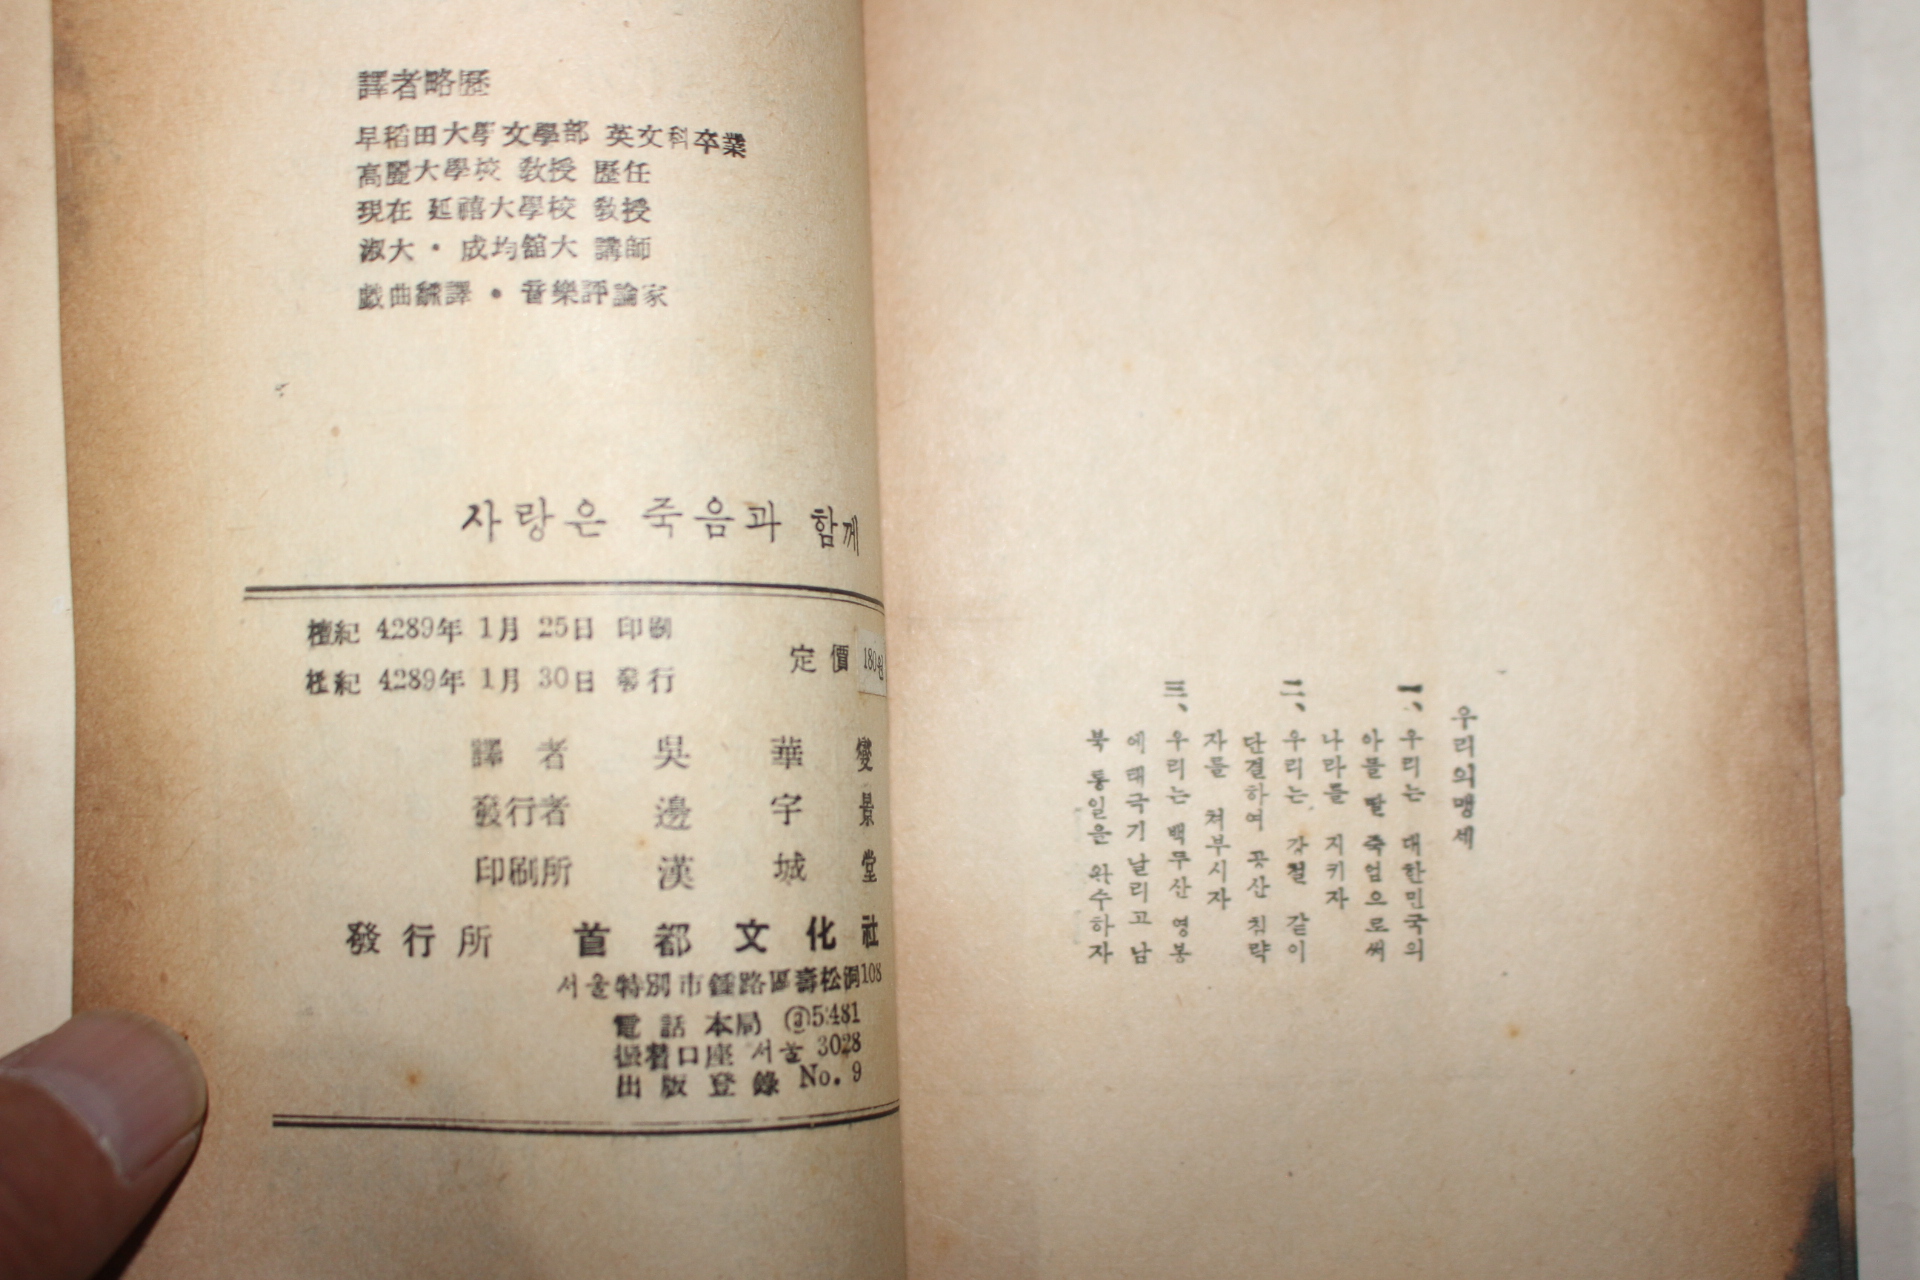 譯者略歷
早稻田大學文學部 英文科卒業
高麗大學校 敎授 歷任
現在 延禧大學校 敎授
淑大・成均舘大 講師
戱曲飜譯・音樂評論家
사랑은 죽음과 함께
檀紀 4289年 1月 25日 印刷
檀紀 4289年 1月 30日 發行
定價 180원
譯者 吳華燮
發行者 邊宇景
印刷所 漢城堂
發行所 首都文化社
서울特別市鍾路區壽松洞108
電話 本局 ③5481
振替口座 서울 3028
出版登錄 No. 9
우리의 맹세
一、우리는 대한민국의
아들 딸 죽엄으로써
나라를 지키자
二、우리는 강철 같이
단결하여 공산 침략
자를 쳐부시자
三、우리는 백두산 영봉
에 태극기 날리고 남
북 통일을 완수하자